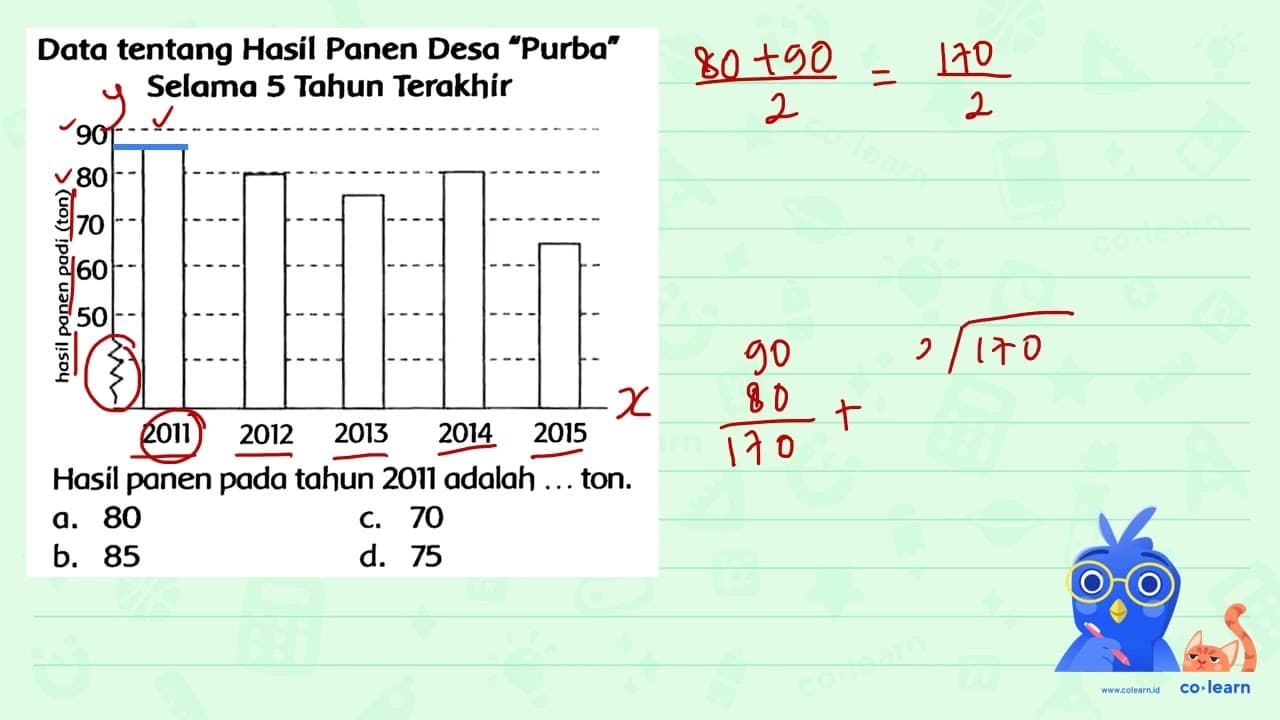 Data tentang Hasil Panen Desa “Purba”
Selama 5 Tahun Terakhir
y
90
80
70
60
50
hasil panen padi (ton)
x
2011 2012 2013 2014 2015
Hasil panen pada tahun 2011 adalah ... ton.
a. 80 c. 70
b. 85 d. 75
80 + 90 = 170
2 2
90
80 +
170
2 170
www.colearn.id co·learn